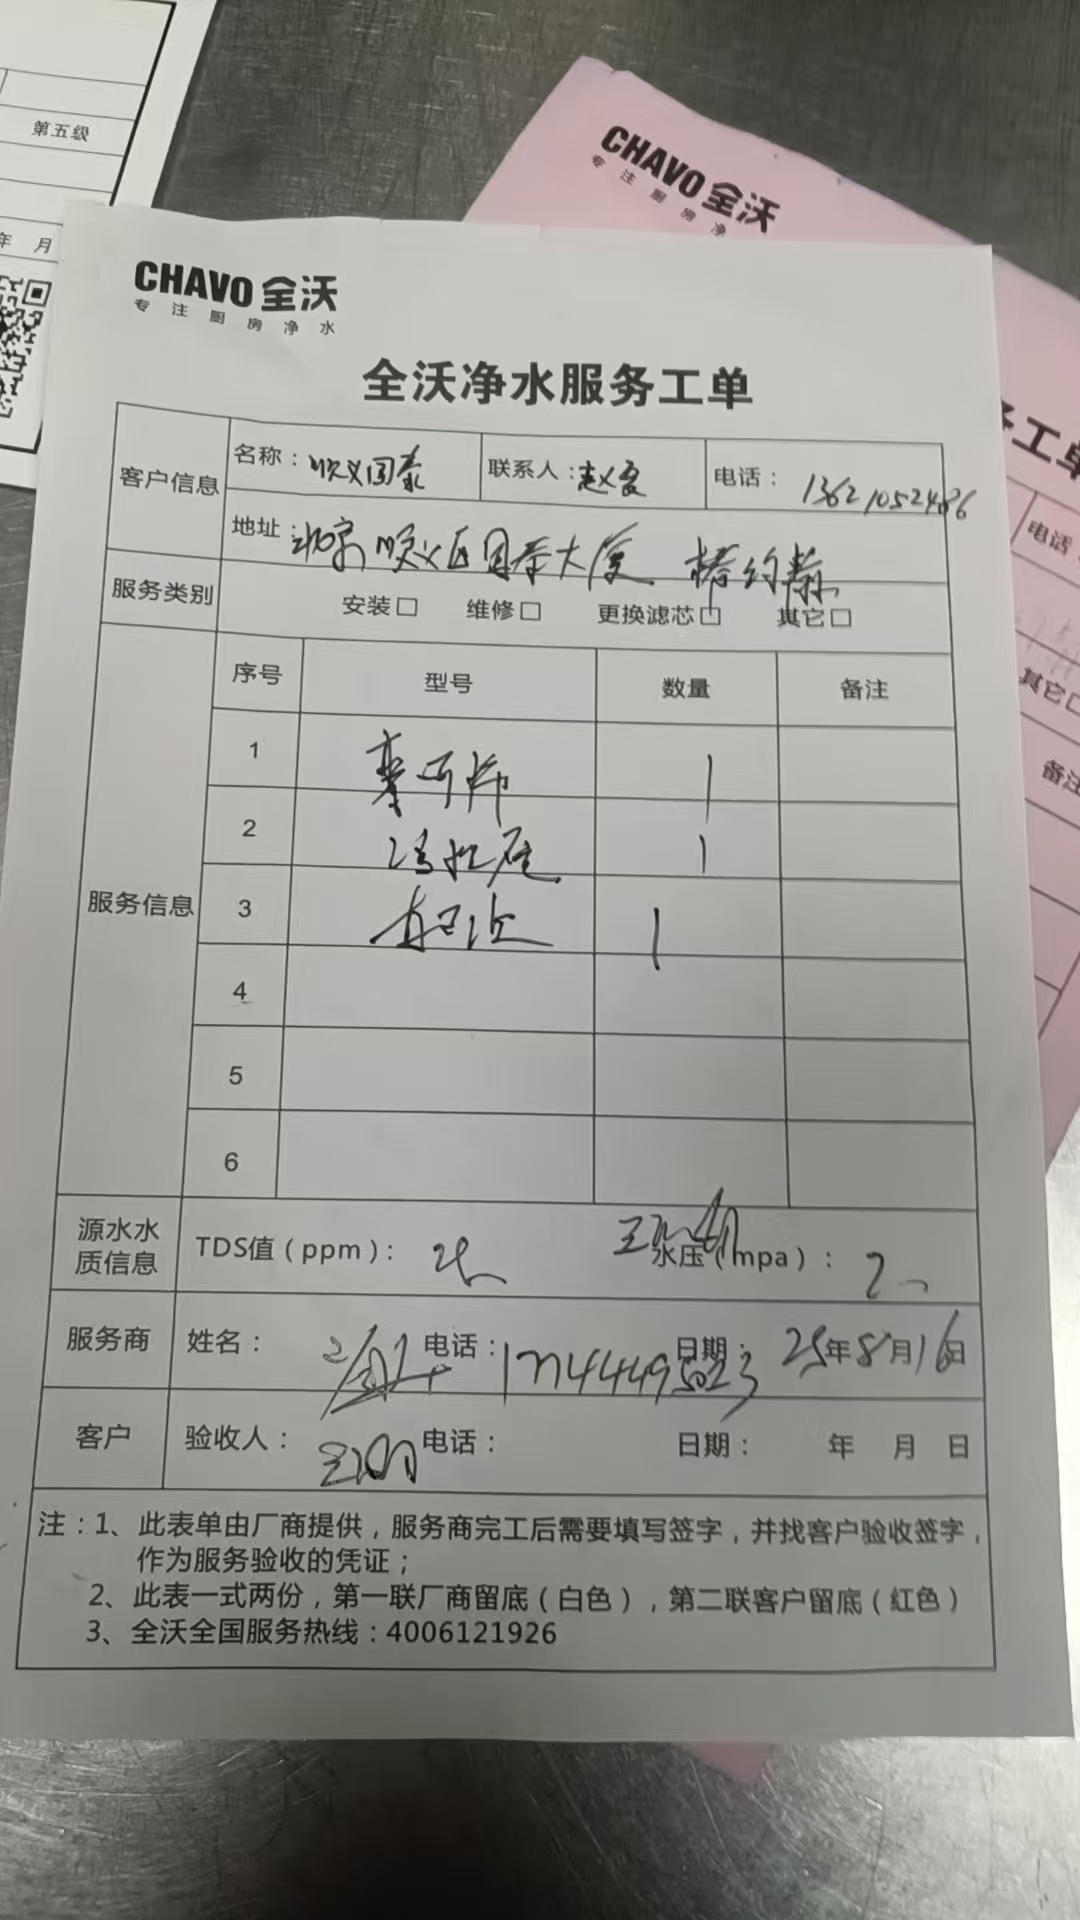 第五级
年 月
CHAVO全沃
专注厨房净
CHAVO全沃
专注厨房净水
全沃净水服务工单
工单
客户信息 名称：顺义国泰 联系人：赵 电话：13621052486
电话
地址：北京顺义区国泰大厦
服务类别 安装□ 维修□ 更换滤芯□ 其它□
其它□
服务信息
序号 型号 数量 备注
备注
1 1
2 1
3 1
4
5
6
源水水质信息 TDS值（ppm）： 水压（mpa）：
服务商 姓名： 电话： 日期：25年8月16日
客户 验收人： 电话： 日期： 年 月 日
注：1、此表单由厂商提供，服务商完工后需要填写签字，并找客户验收签字，
作为服务验收的凭证；
2、此表一式两份，第一联厂商留底（白色），第二联客户留底（红色）
3、全沃全国服务热线：4006121926